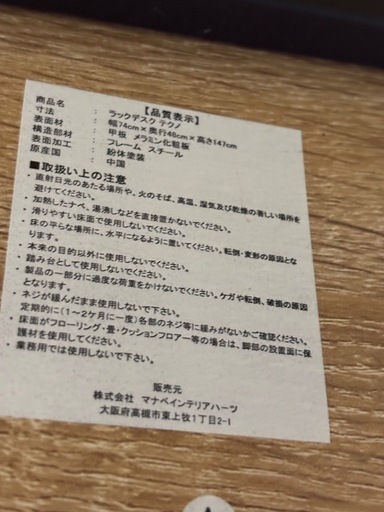 【品質表示】
商品名 : ラックデスク テクノ
寸法 : 幅74cm×奥行48cm×高さ147cm
表面材 : 甲板 メラミン化粧板
構造部材 : フレーム スチール
表面加工 : 粉体塗装
原産国 : 中国
■取扱い上の注意
・直射日光のあたる場所や、火のそば、高温、湿気及び乾燥の著しい場所を
避けてください。
・加熱したナベ、湯沸しなどを直接置かないでください。
・滑りやすい床面で使用しないでください。
・床の平らな場所に、水平になるように置いてください。転倒・変形の原因とな
ります。
・本来の目的以外に使用しないでください。
・踏み台として使用しないでください。
・製品の一部分に過度な荷重をかけないでください。ケガや転倒、破損の原因
となります。
・ネジが緩んだまま使用しないで下さい。
定期的に(1〜2ケ月に一度)各部のネジ等に緩みがないかご確認ください。
・床面がフローリング・畳・クッションフロアー等の場合は、脚部の設置面に保
護材を使用してください。
・業務用では使用しないで下さい。
販売元
株式会社 マナベインテリアハーツ
大阪府高槻市東上牧1丁目2-1